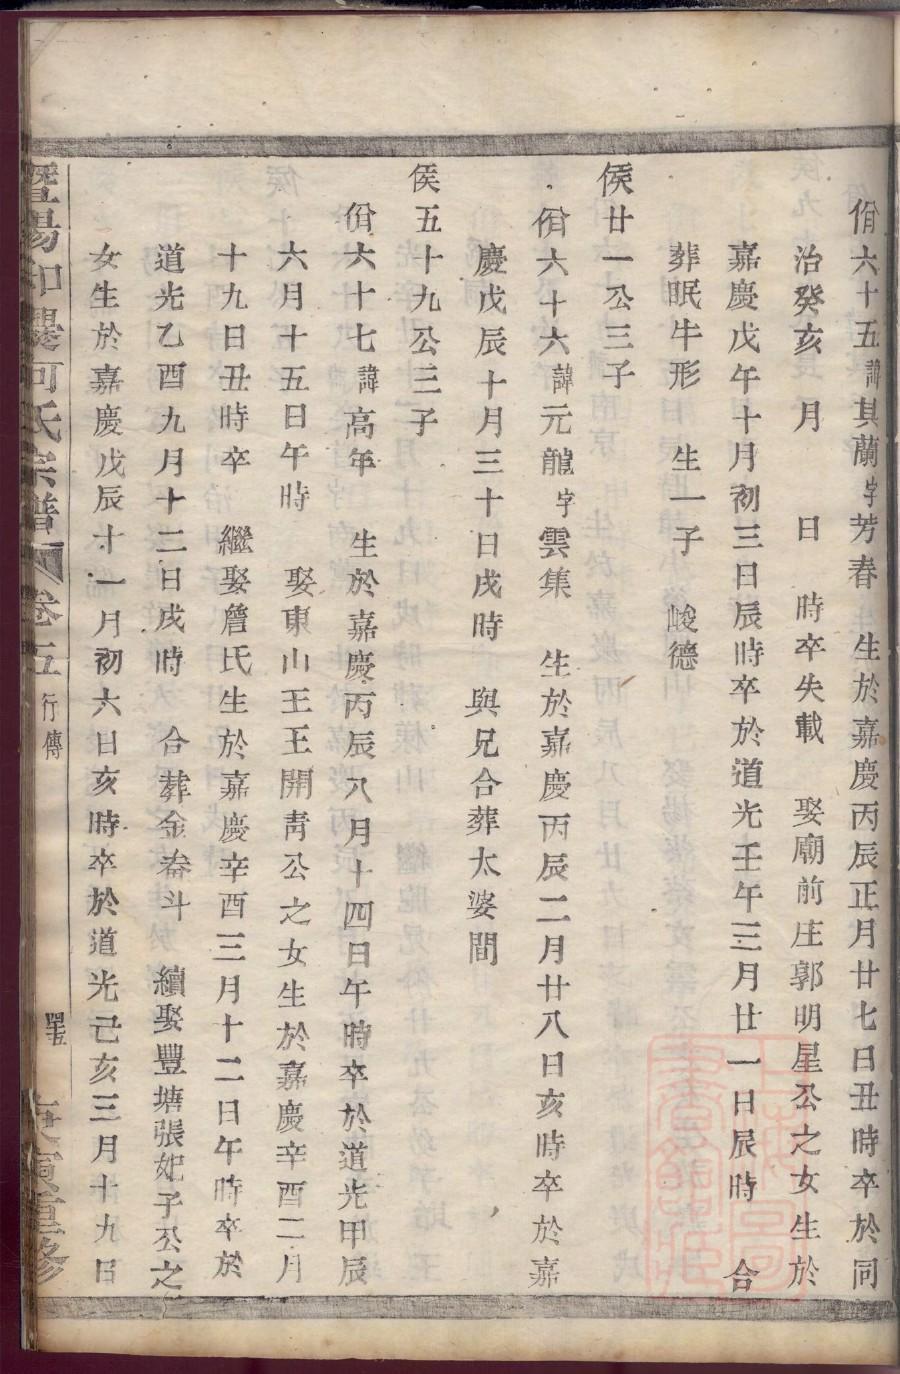 佾六十五諱其蘭字芳春　生於嘉慶丙辰正月廿七日丑時卒於同
治癸亥　月　　日　時卒失載　娶廟前庄郭明星公之女生於
嘉慶戊午十月初三日辰時卒於道光壬午三月廿一日辰時　合
葬眠牛形　生一子　峻德
侯廿一公三子
佾六十六諱元龍字雲集　生於嘉慶丙辰二月廿八日亥時卒於嘉
慶戊辰十月三十日戌時　與兄合葬太婆間
侯五十九公三子
佾六十七諱高年　生於嘉慶丙辰八月十四日午時卒於道光甲辰
六月十五日午時　娶東山王王開青公之女生於嘉慶辛酉二月
十九日丑時卒　繼娶詹氏生於嘉慶辛酉三月十二日午時卒於
道光乙酉九月十二日戌時　合葬金畚斗　續娶豐塘張妃子公之
女生於嘉慶戊辰十一月初六日亥時卒於道光己亥三月十九日
暨陽和何氏宗譜　卷五　行傳